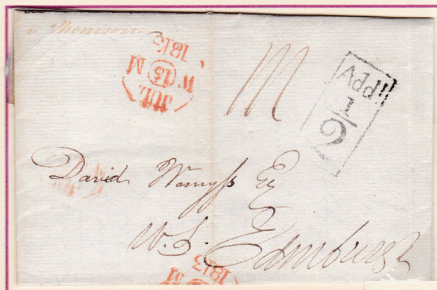 JUL
M 13 W
1813
Add'l
1/2
David Wemyss Esq
W.S. Edinburgh
M
1813